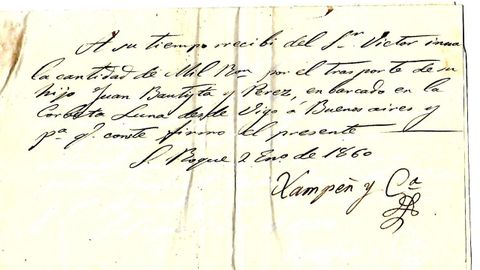 A su tiempo recibi del Sr. Victor
la cantidad de Mil Ron por el trasporte de su
hijo Juan Bautista y Perez, enbarcado en la
Corbeta Lunal desde Vigo á Buenosaires y
pa. q. conste firmo el presente
S. Roque 2 Eno de 1860
Xampen y Ca